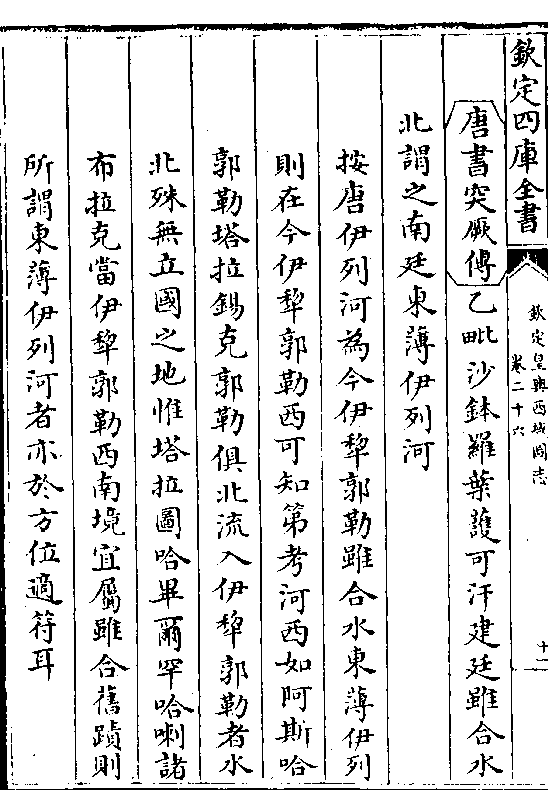 欽定四庫全書
欽定皇輿西域圖志
卷二十六
十二
唐書突厥傳乙毗沙鉢羅葉護可汗建廷雖合水
北謂之南廷東薄伊列河
按唐伊列河為今伊犂郭勒雖合水東薄伊列
則在今伊犂郭勒西可知第考河西如阿斯哈
郭勒塔拉錫克郭勒俱北流入伊犂郭勒者水
北殊無立國之地惟塔拉圖哈畢爾罕哈喇諸
布拉克當伊犂郭勒西南境宜屬雖合舊蹟則
所謂東薄伊列河者亦於方位適符耳